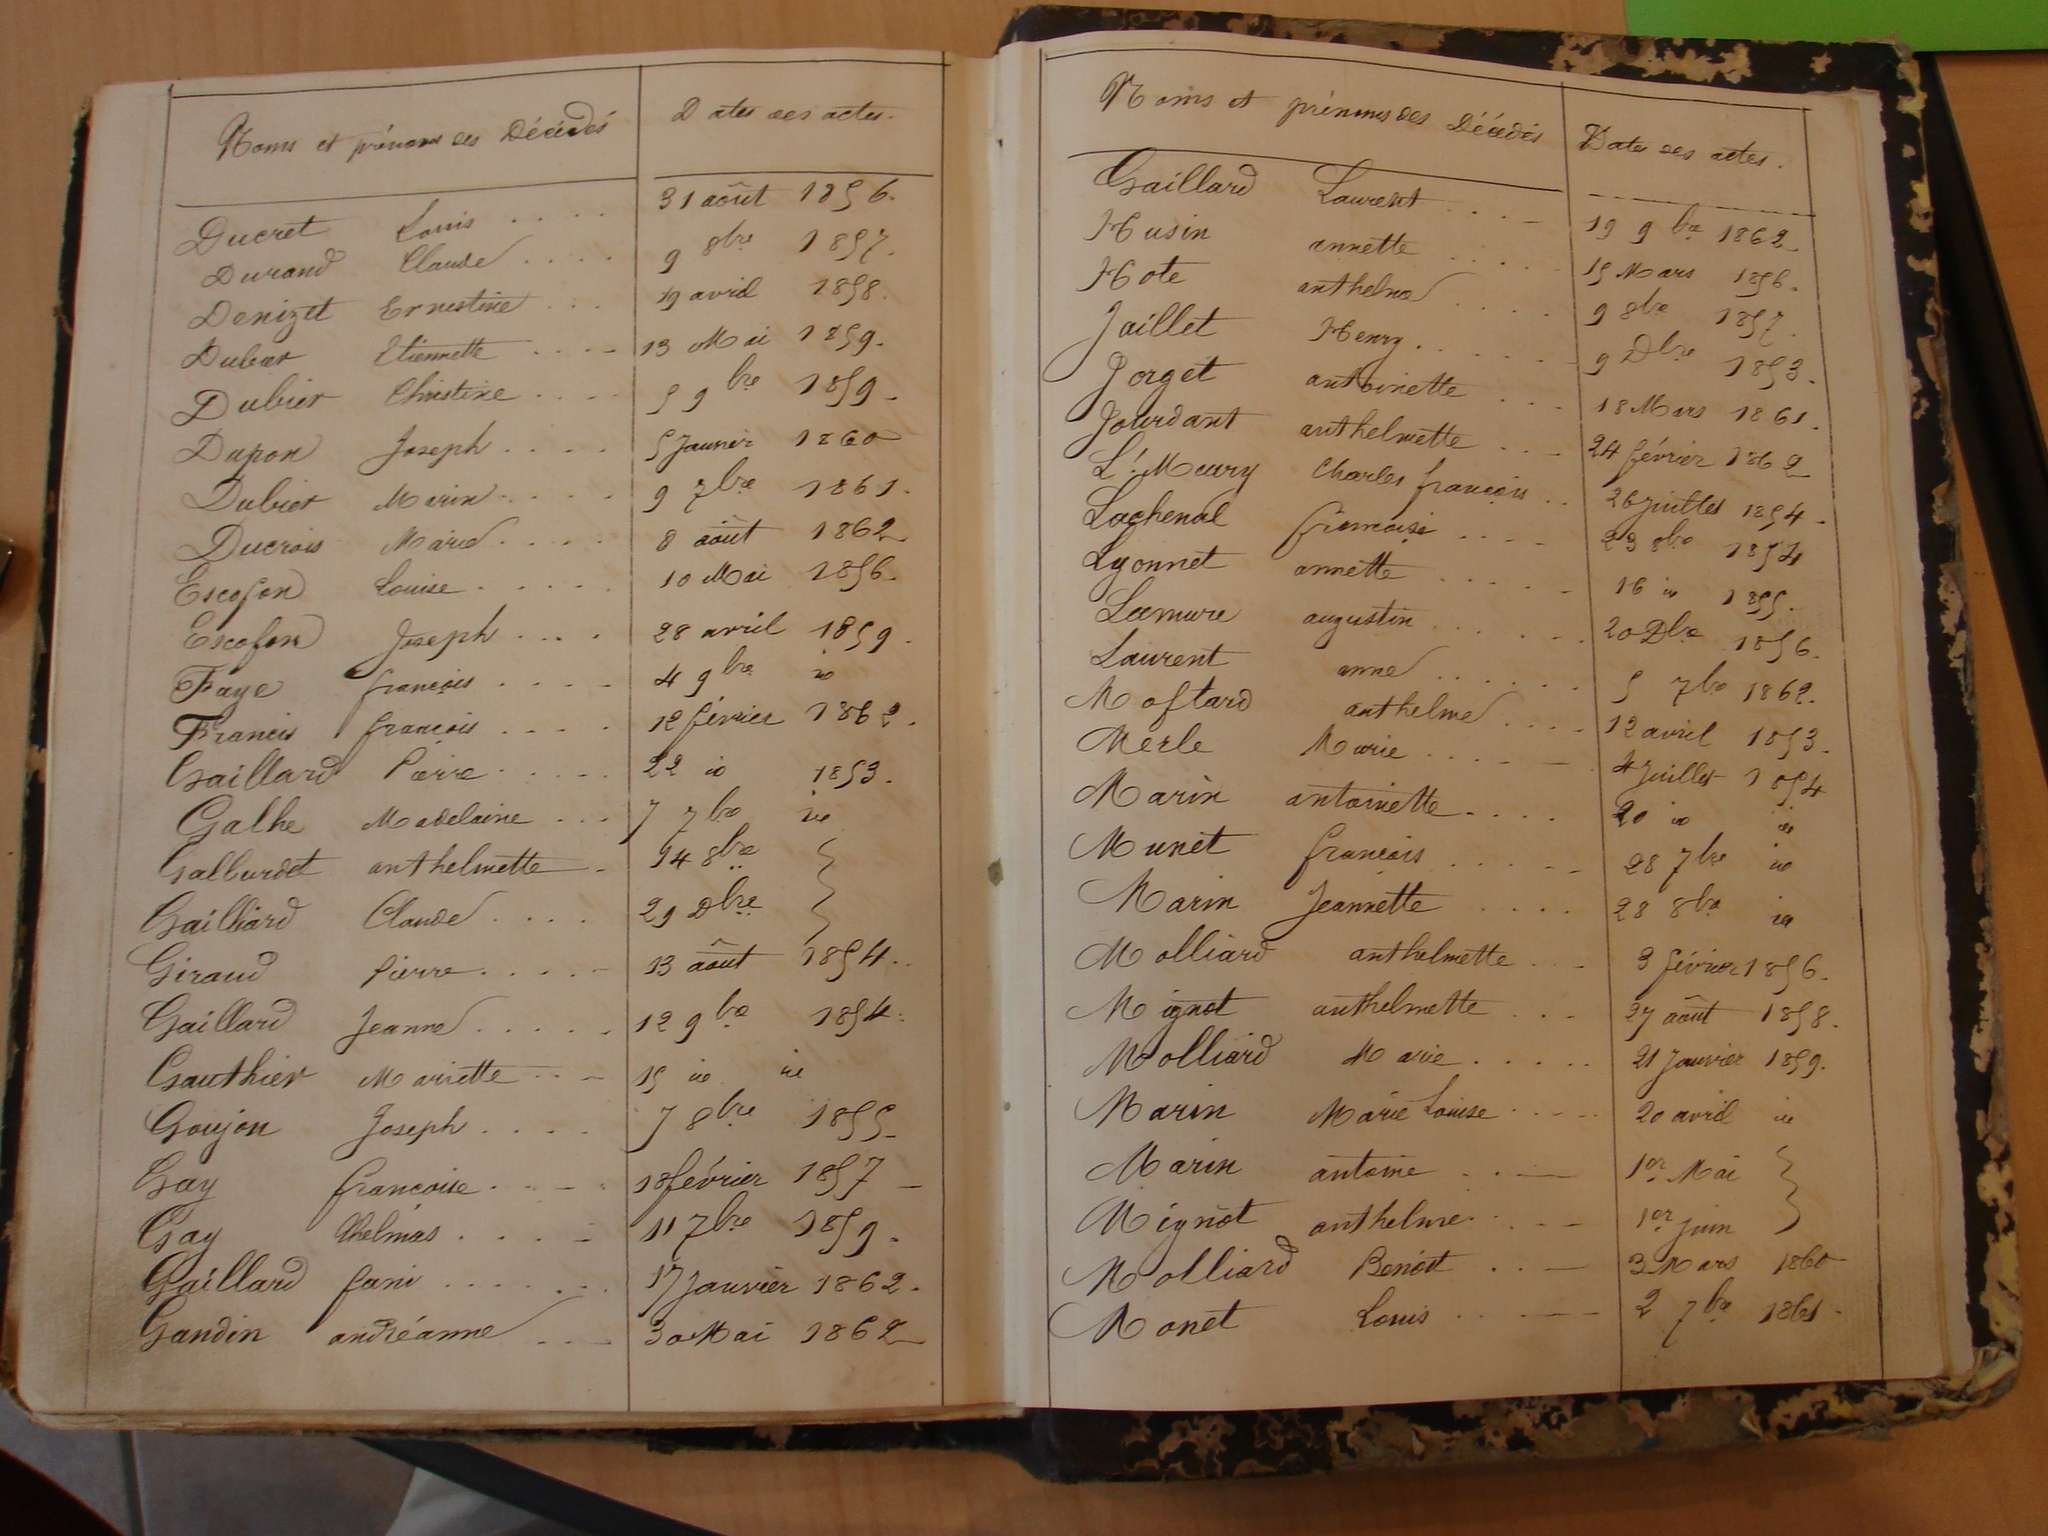 Noms et prénoms des Décédés Dates des actes.
Ducret Louis .... 31 août 1856.
Durand Claude .... 9 8bre 1857.
Denizet Ernestine ... 19 avril 1858.
Etiennette .... 13 Mai 1859.
Dubier Christine .... 5 9bre 1859.
Dupon Joseph .... 5 Janvier 1860
Dubier Marin .... 9 7bre 1861.
Ducrois Marie .... 8 août 1862
Escofon Louise ..... 10 Mai 1856.
Escofon Joseph .... 28 avril 1859.
Faye françois .... 4 9bre id
Francis françois .... 12 février 1862.
Gaillard Pierre ..... 22 id 1853.
Galhe Madelaine ... 7 7bre id
anthelmette . 14 8bre
Gailliard Claude .... 29 Dbre
Giraud Pierre ..... 13 août 1854.
Gaillard Jeanne ..... 12 9bre 1854.
Gauthier Mariette ... 15 id id
Goujon Joseph .... 7 8bre 1855
Gay françoise .... 18 février 1857
Gay thelmas .... 11 7bre 1859.
Gaillard fani ...... 17 Janvier 1862.
Gandin andréanne ... 30 Mai 1862
Noms et prénoms des Décédés Dates des actes.
Gaillard Laurent .... 19 9bre 1862
Husin annette ..... 15 Mars 1856.
Hote anthelme .... 9 8bre 1857.
Jaillet Henry ...... 9 Dbre 1853.
Jorget antoinette ... 18 Mars 1861.
Jourdant anthelmette ... 24 février 1862
L. Meury Charles françois .. 26 Juillet 1854.
Lachenal françoise .... 23 8bre 1854
Lyonnet annette ..... 16 id 1855.
Lamure augustin ...... 20 Dbre 1856.
Laurent anne ...... 5 7bre 1862.
Moftard anthelme .... 12 avril 1853.
Merle Marie ..... 4 Juillet 1854
Marin antoinette .... 20 id id
Munet françois ..... 28 7bre id
Marin Jeannette .... 28 8bre id
Molliard anthelmette .. 3 février 1856.
Mignot anthelmette ... 27 août 1858.
Molliard Marie ..... 21 Janvier 1859.
Marin Marie Louise .... 20 avril id
Marin antoine ... 1er Mai
Mignot anthelme ... 1er juin
Molliard Benoit ... 3 Mars 1860
Monet Louis ..... 2 7bre 1861.